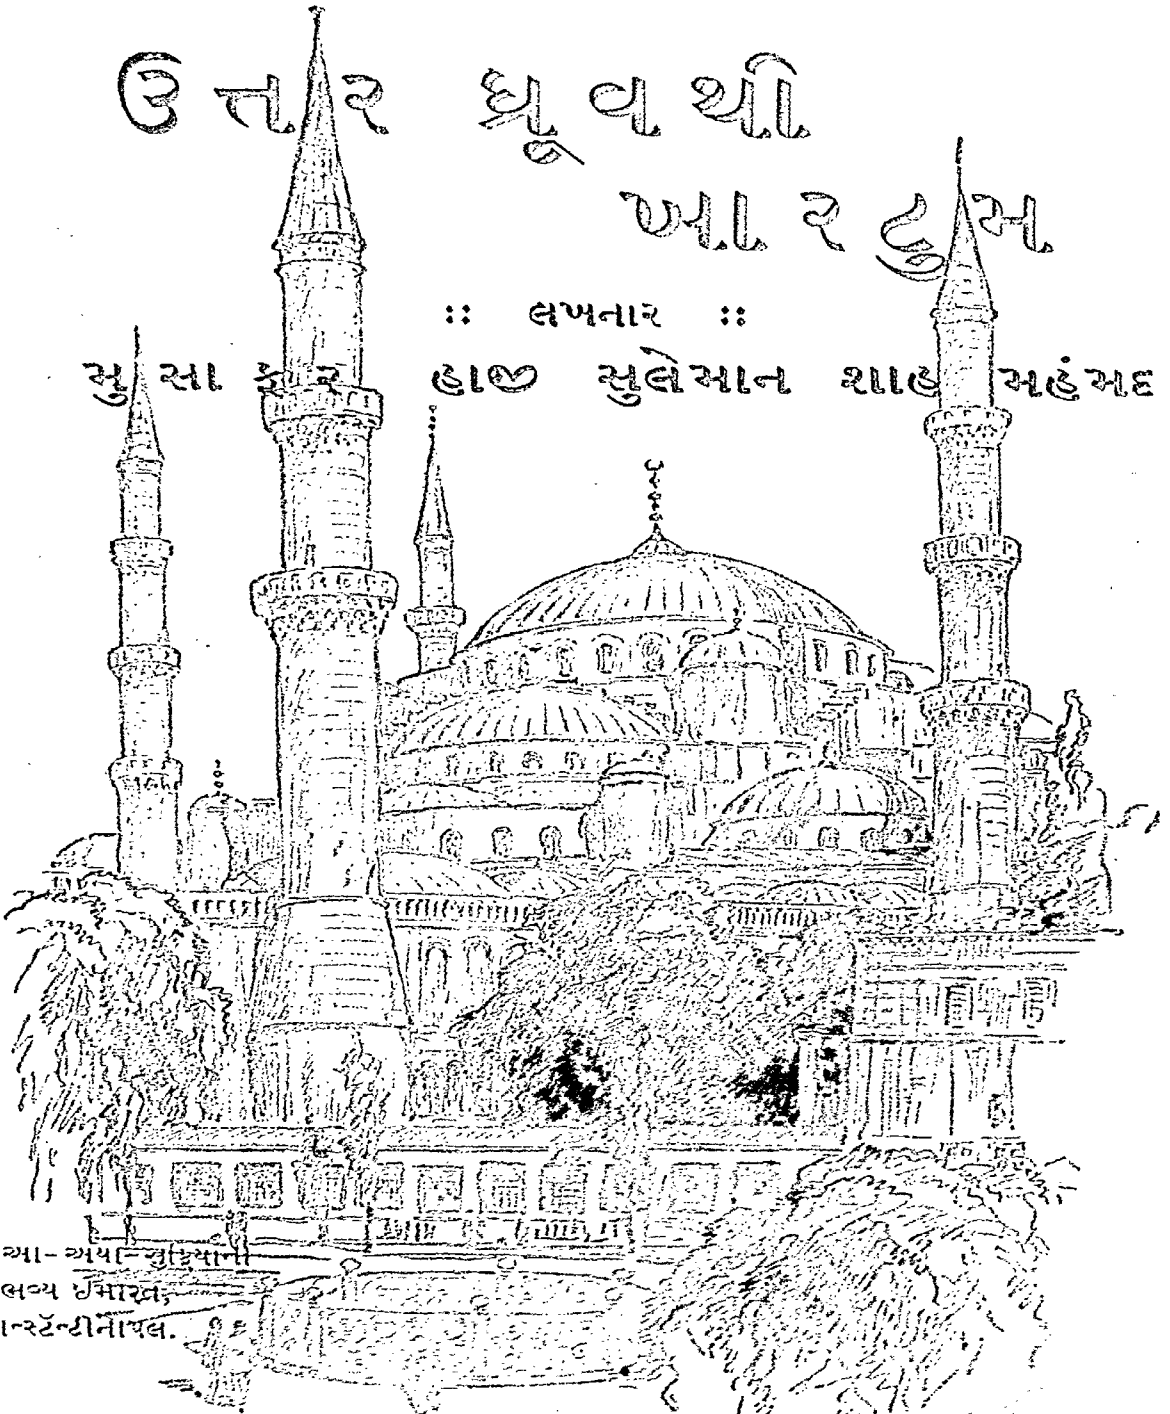 ઉત્તર ધ્રૂવથી
ખારટુમ
:: લખનાર ::
મુસાફર હાજી સુલેમાન શાહ મહંમદ
આ-અયા-સુફિયાની
ભવ્ય ઈમારત,
ન્સ્ટૅન્ટીનોપલ.